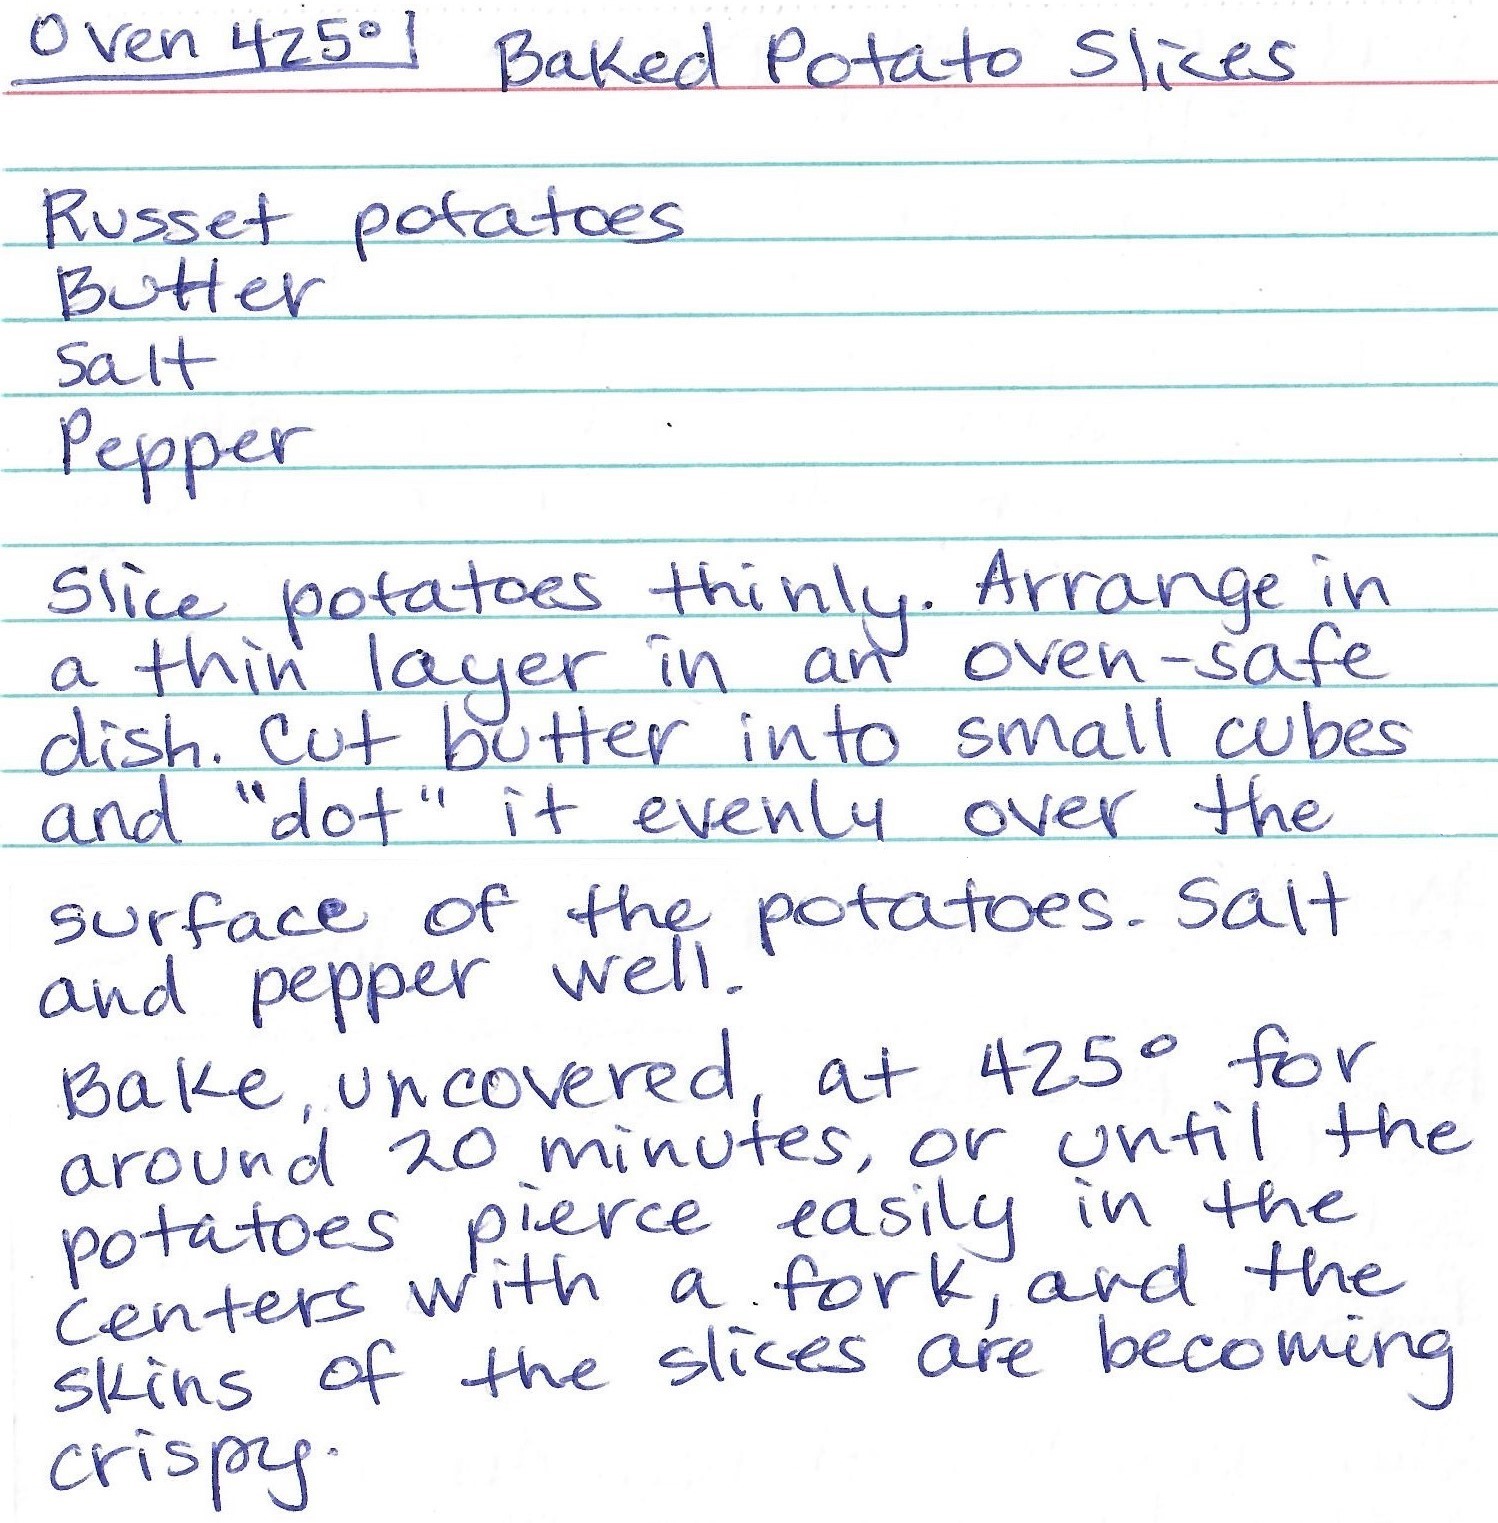 Oven 425° Baked Potato Slices
Russet potatoes
Butter
Salt
Pepper
Slice potatoes thinly. Arrange in
a thin layer in an oven-safe
dish. Cut butter into small cubes
and "dot" it evenly over the
surface of the potatoes. Salt
and pepper well.
Bake, uncovered, at 425° for
around 20 minutes, or until the
potatoes pierce easily in the
centers with a fork, and the
skins of the slices are becoming
crispy.